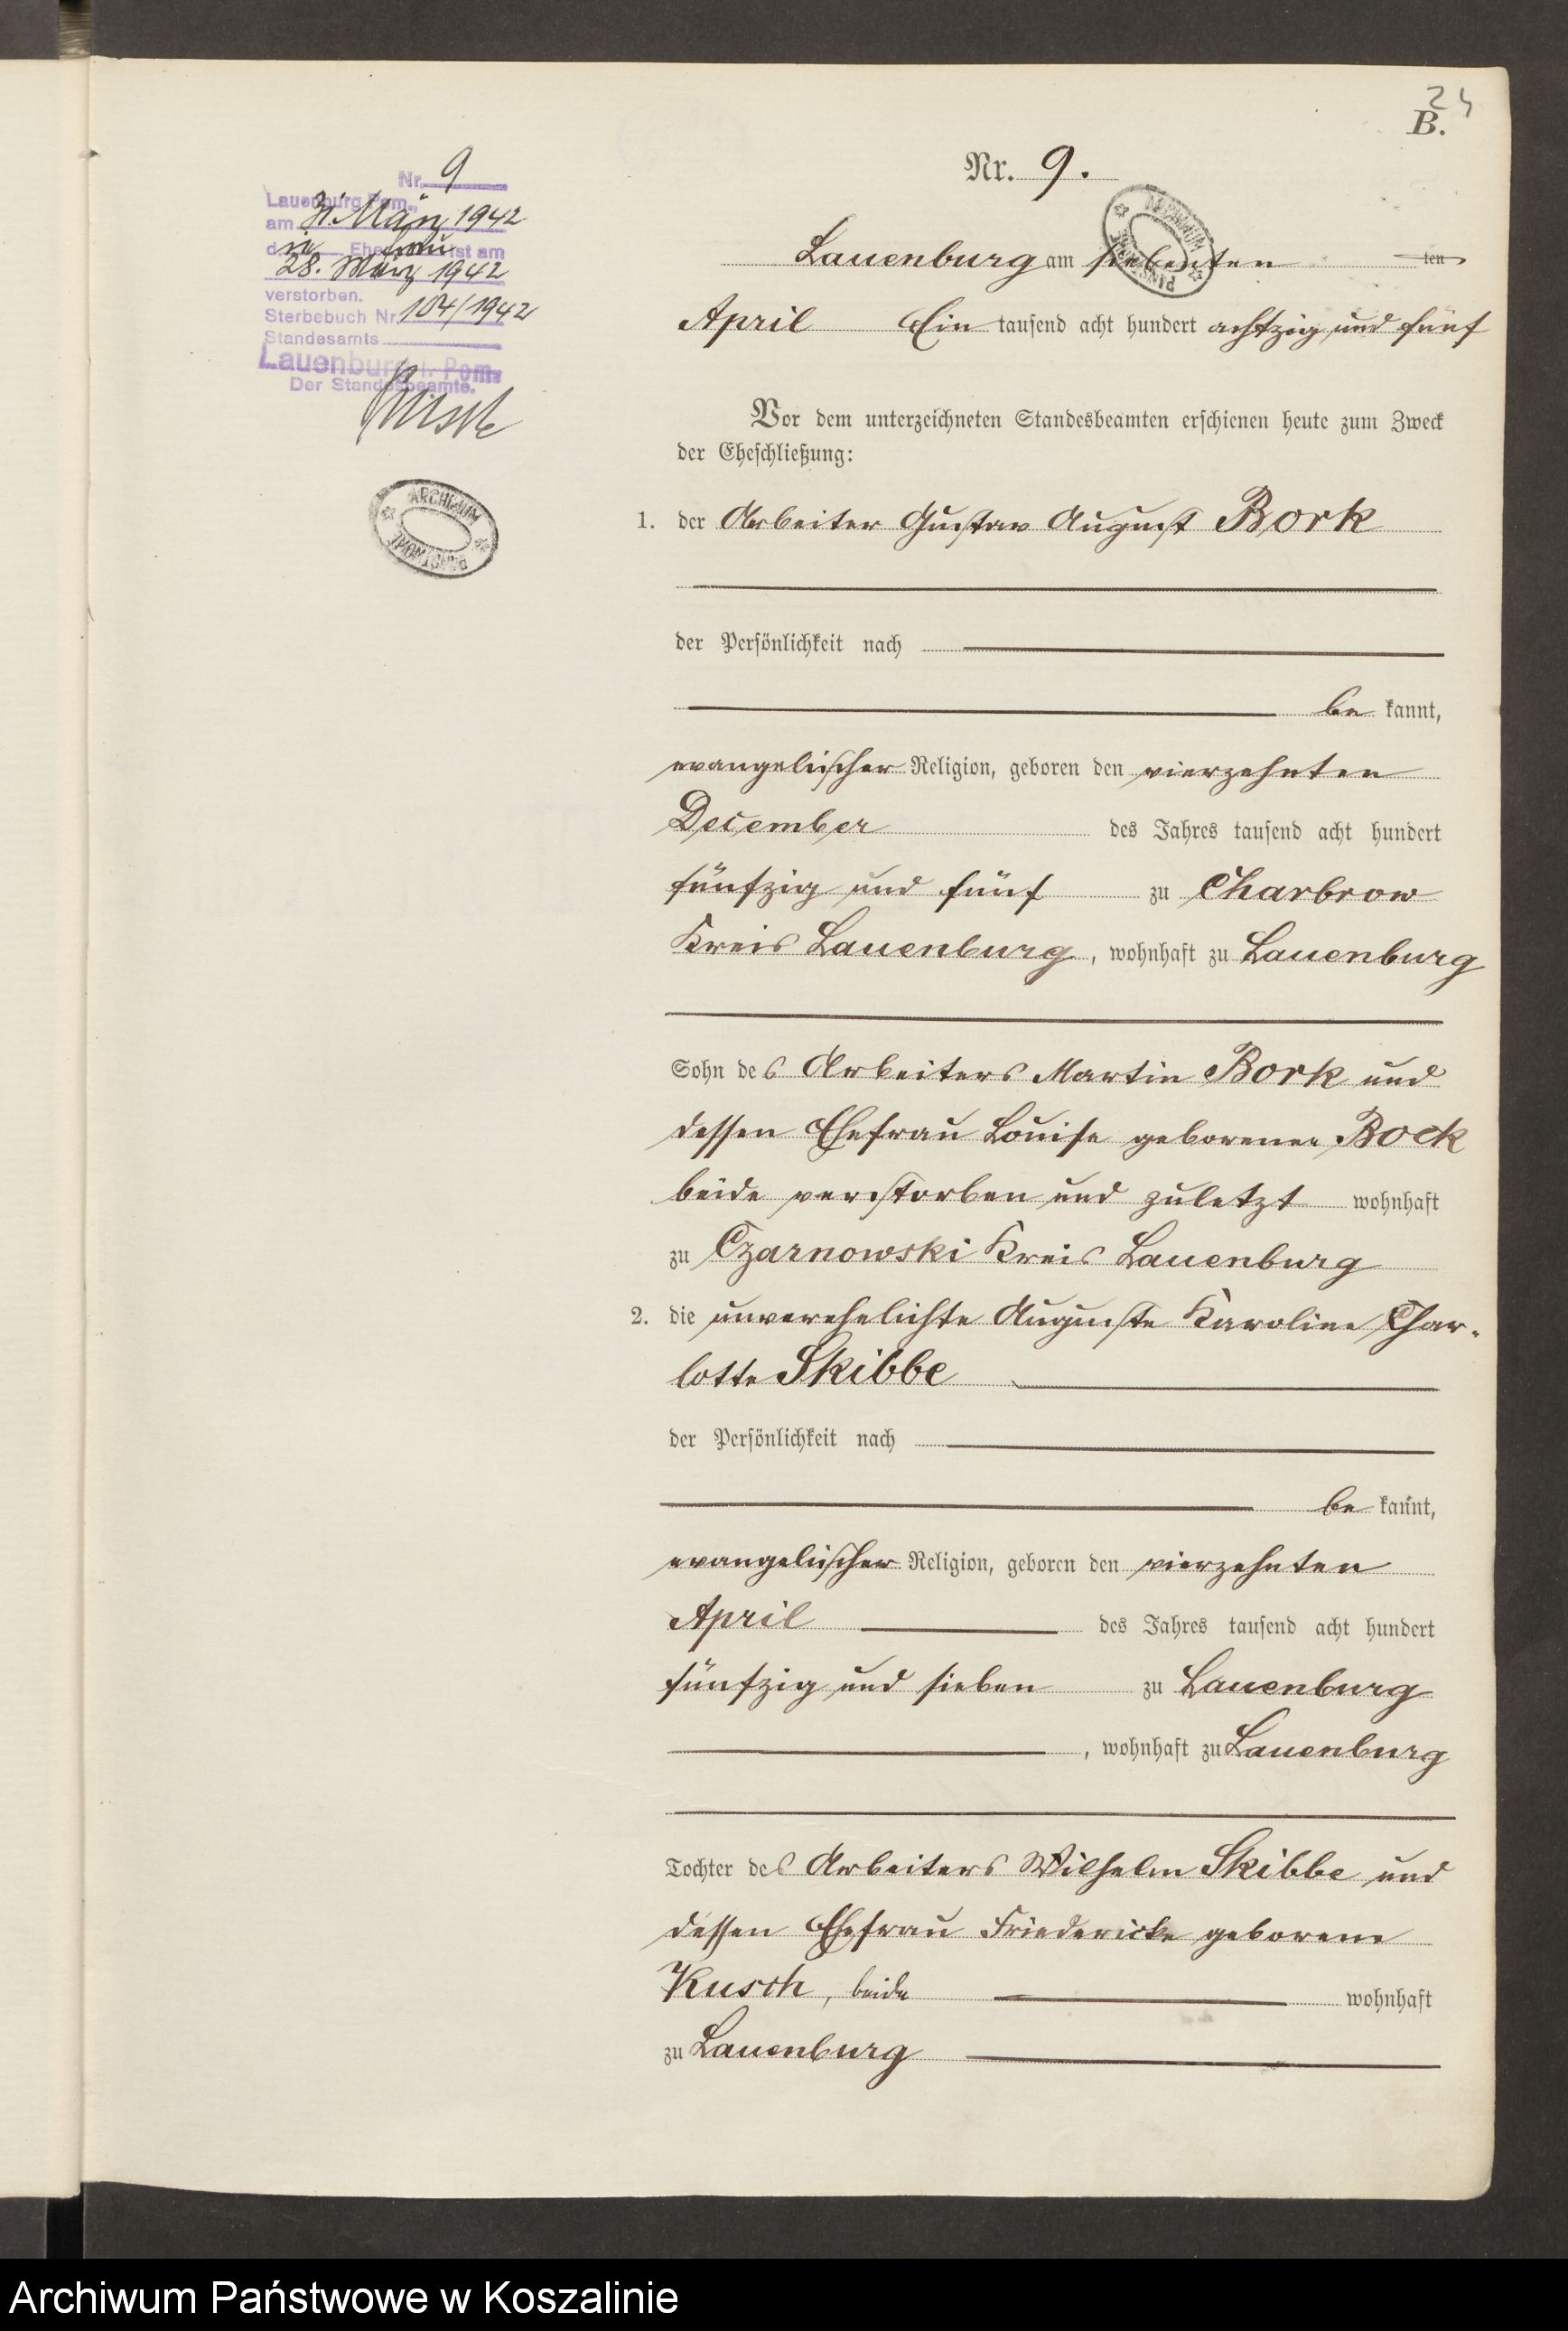 24
B.
Nr. 9.
Lauenburg am siebenten ten
April Ein tausend acht hundert achtzig und fünf
Vor dem unterzeichneten Standesbeamten erschienen heute zum Zweck
der Eheschließung:
1. der Arbeiter Gustav August Bork
der Persönlichkeit nach
be kannt,
evangelischer Religion, geboren den vierzehnten
December des Jahres tausend acht hundert
fünfzig und fünf zu Charbrow
Kreis Lauenburg, wohnhaft zu Lauenburg
Sohn des Arbeiters Martin Bork und
dessen Ehefrau Louise geborenen Bock
beide verstorben und zuletzt wohnhaft
zu Czarnowski Kreis Lauenburg
2. die unverehelichte Auguste Karoline Char-
lotte Skibbe
der Persönlichkeit nach
be kannt,
evangelischer Religion, geboren den vierzehnten
April des Jahres tausend acht hundert
fünfzig und sieben zu Lauenburg
, wohnhaft zu Lauenburg
Tochter des Arbeiters Wilhelm Skibbe und
dessen Ehefrau Friedericke geborene
Kusch, beide wohnhaft
zu Lauenburg
Nr. 9
Lauenburg Pom.,
am 31. März 1942
die Ehefrau ist am
28. März 1942
verstorben.
Sterbebuch Nr. 104/1942
Standesamts
Lauenburg i. Pom.
Der Standesbeamte.
ARCHIWUM
Archiwum Państwowe w Koszalinie